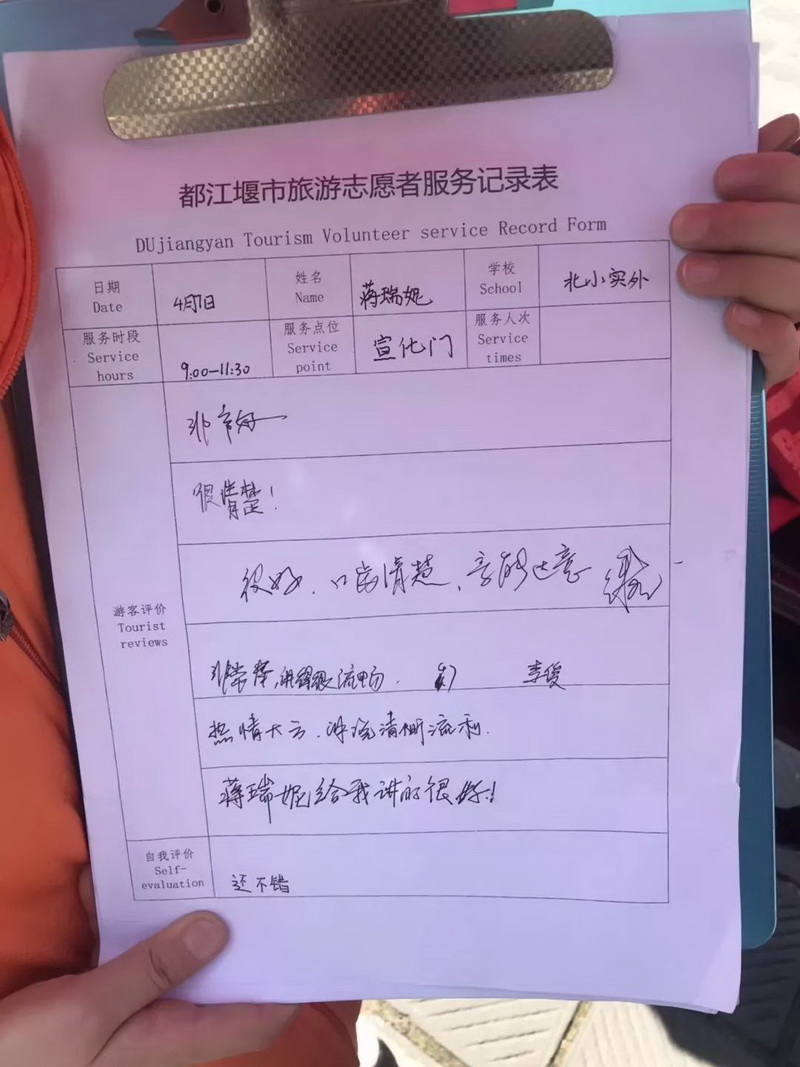 都江堰市旅游志愿者服务记录表
DUjiangyan Tourism Volunteer service Record Form
日期 Date 4月7日 姓名 Name 蒋瑞妮 学校 School 北小实外
服务时段 Service hours 9:00-11:30 服务点位 Service point 宣化门 服务人次 Service times
游客评价 Tourist reviews
非常好
很清楚!
很好、口齿清楚、言能达意
非常棒,讲解很流畅. 李俊
热情大方、讲说清晰流利.
蒋瑞妮给我讲的很好!
自我评价 Self-evaluation 还不错